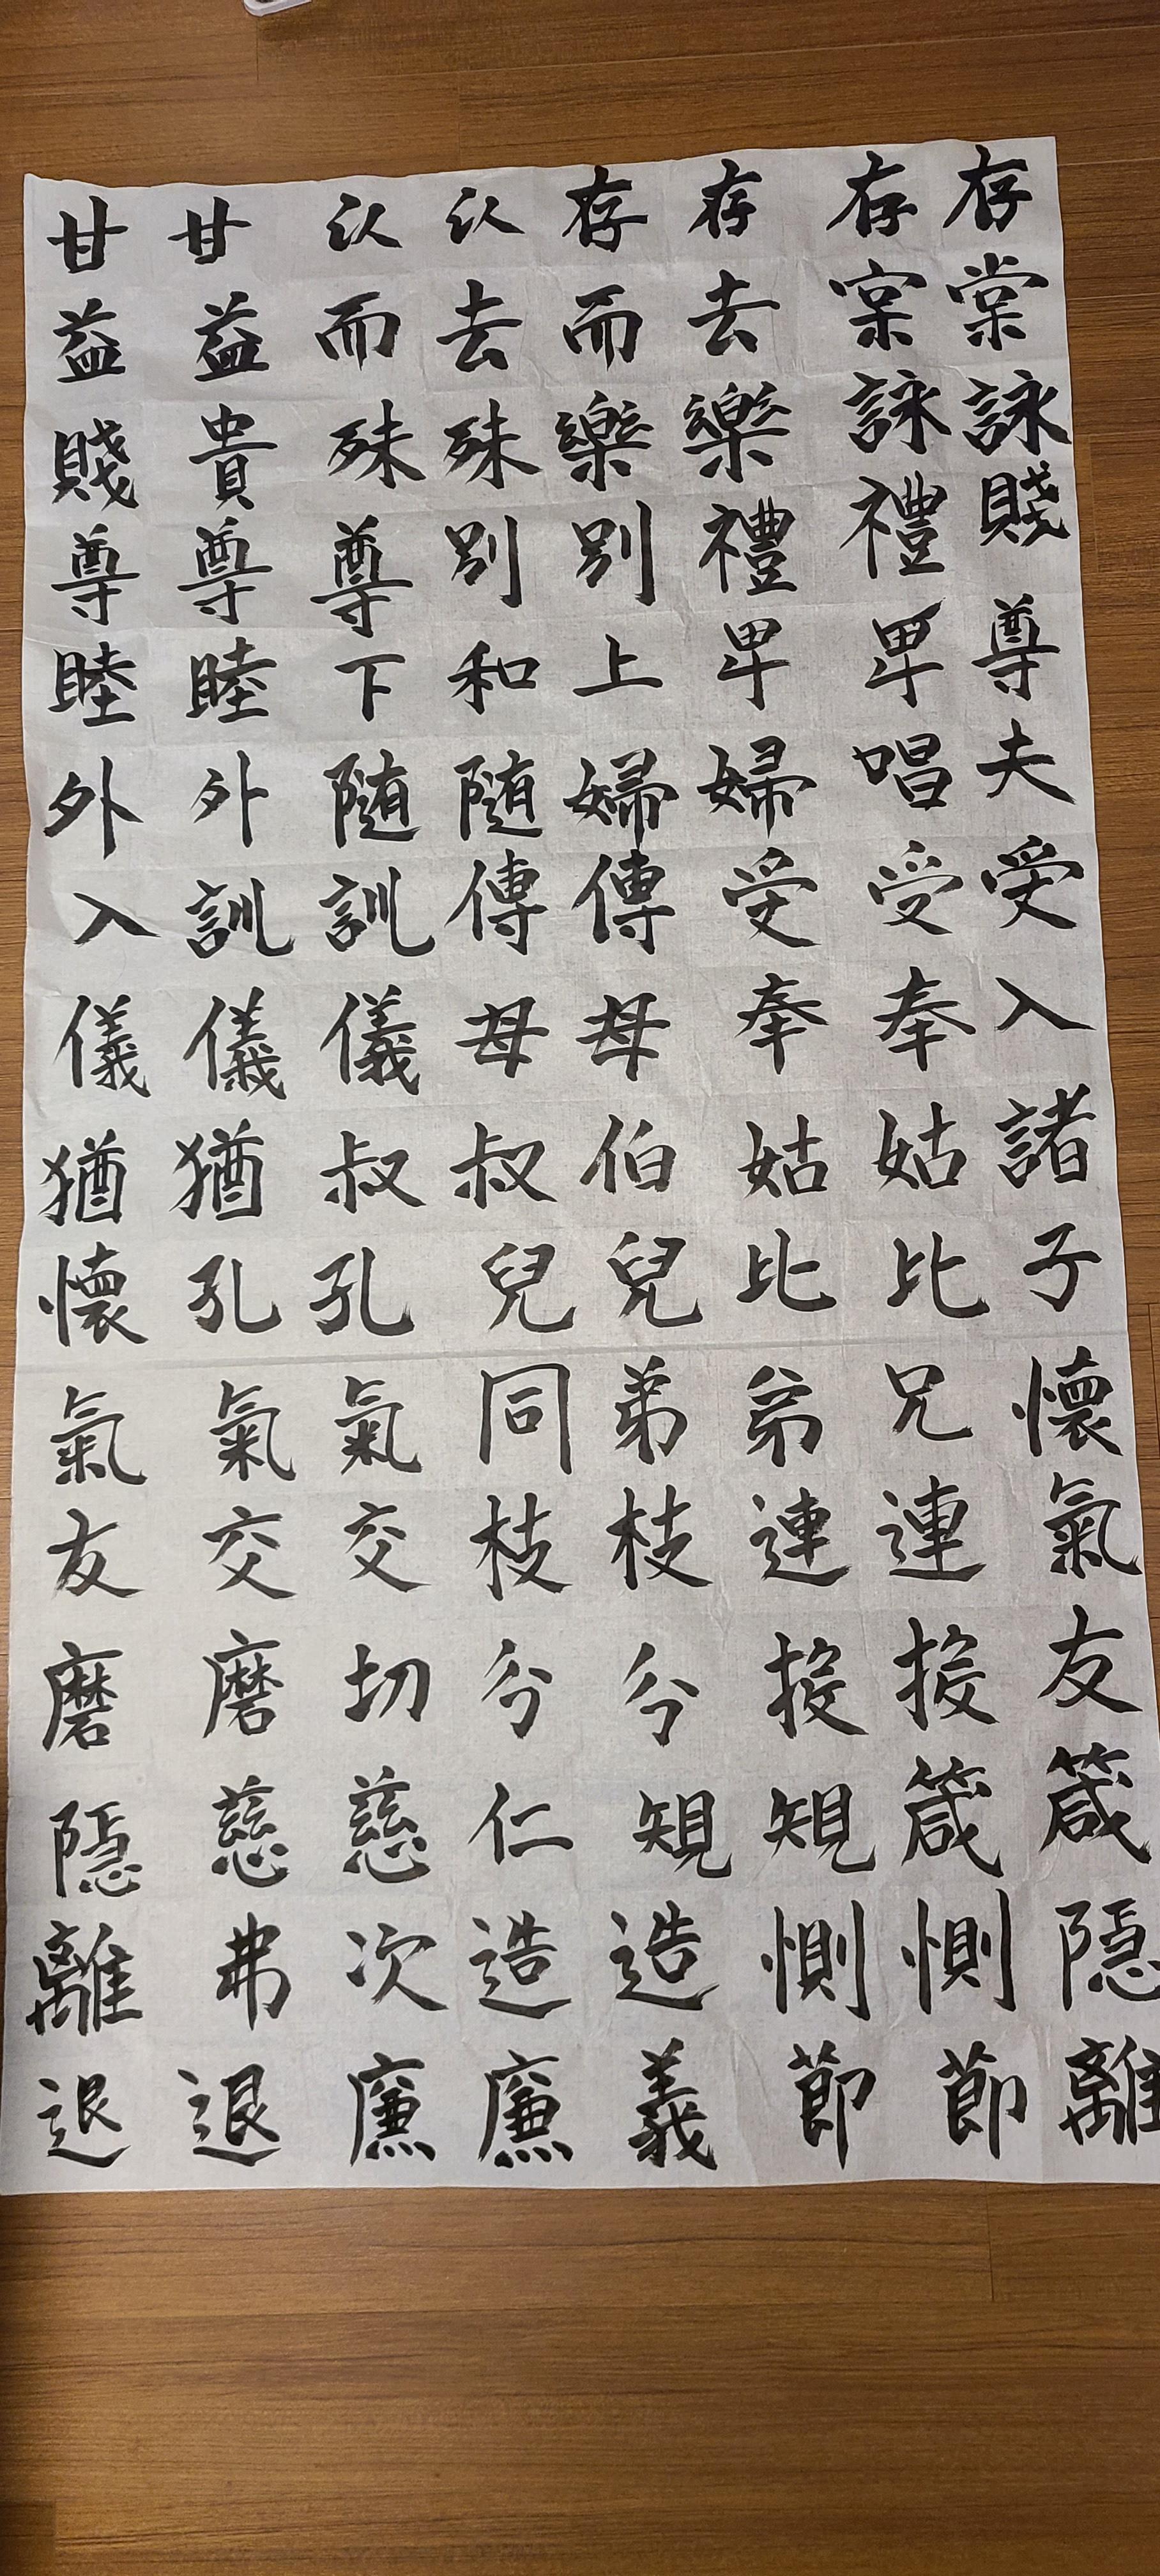 存存存存以以甘甘
棠棠去而去而益益
詠詠樂樂殊殊貴賤
賤禮禮別別尊尊尊
尊卑卑上和下睦睦
夫唱婦婦随随外外
受受受傅傅訓訓入
入奉奉母母儀儀儀
諸姑姑伯叔叔猶猶
子比比兒兒孔孔懷
懷兄弟弟同氣氣氣
氣連連枝枝交交友
友投投分分切磨磨
箴箴規規仁慈慈隠
隠惻惻造造次弗離
離節節義廉廉退退